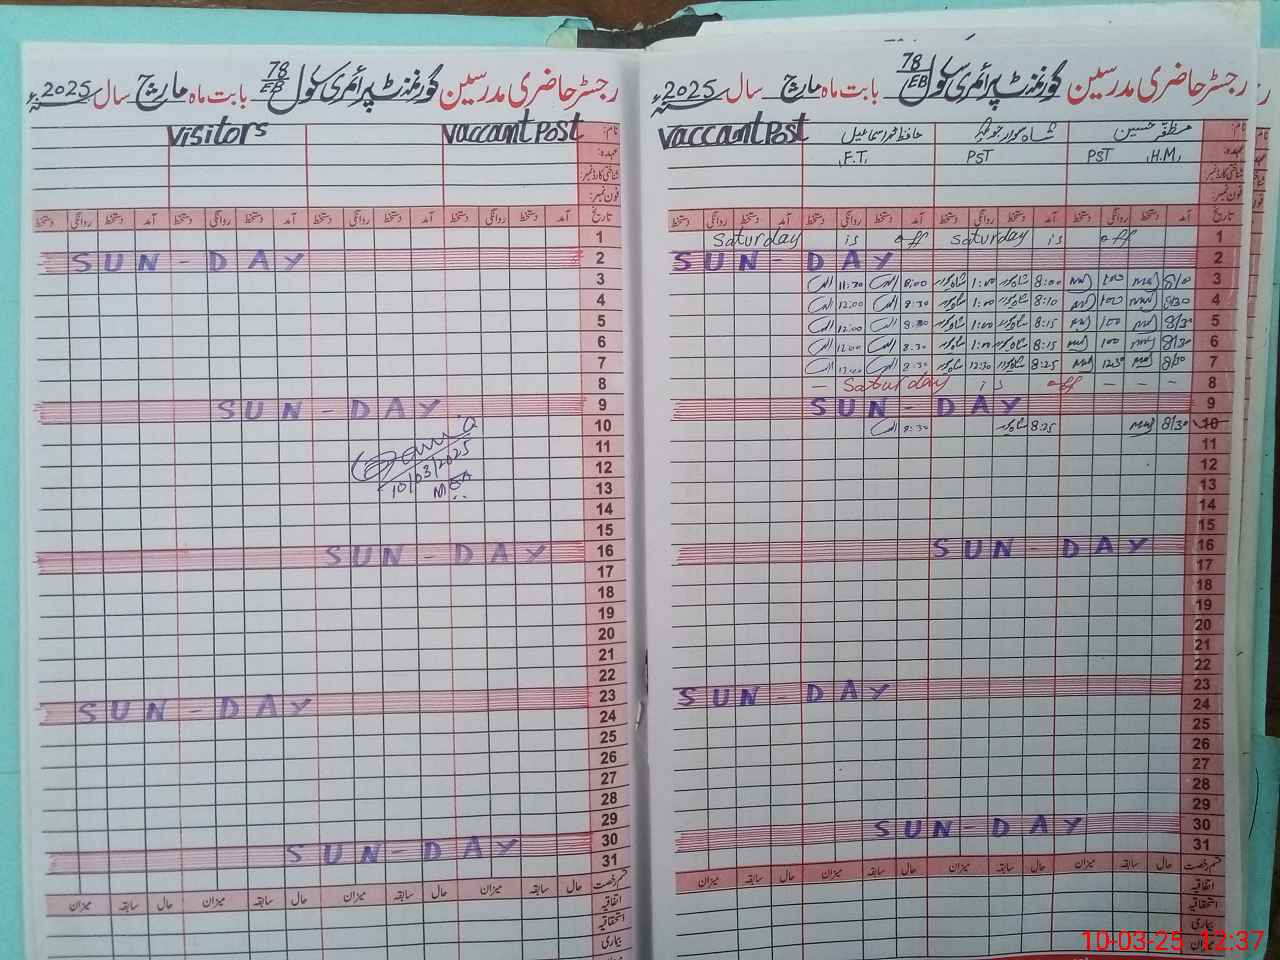 رجسٹر حاضری مدرسین گورنمنٹ پرائمری سکول 78/EB بابت ماہ مارچ سال 2025ء
نام: مظفر حسین Vaccant Post
عہدہ: H.M, PST PST F.T,
شناختی کارڈ نمبر:
فون نمبر:
تاریخ آمد دستخط روانگی دستخط آمد دستخط روانگی دستخط آمد دستخط روانگی دستخط آمد دستخط روانگی دستخط
1 Saturday is off Saturday is off
2 SUN-DAY
3 8/10 1:00 8:00 1:00 8:00 11:30
4 8/30 1:00 8:10 1:00 8:30 12:00
5 8/30 1:00 8:15 1:00 12:00
6 8/30 1:00 8:15 1:00 8:30 12:00
7 8/30 12:30 8:25 12:30 8:30
8 — Saturday is off — — —
9 SUN-DAY
10 8/30 8:25 8:30
11
12
13
14
15
16 SUN-DAY
17
18
19
20
21
22
23 SUN-DAY
24
25
26
27
28
29
30 SUN-DAY
31
قسم رخصت حال سابقہ میزان حال سابقہ میزان حال سابقہ میزان حال سابقہ میزان
اتفاقیہ
استحقاقیہ
بیماری
میزان
رجسٹر حاضری مدرسین گورنمنٹ پرائمری سکول 78/EB بابت ماہ مارچ سال 2025ء
نام: Vaccant Post Visitors
عہدہ:
شناختی کارڈ نمبر:
فون نمبر:
تاریخ آمد دستخط روانگی دستخط آمد دستخط روانگی دستخط آمد دستخط روانگی دستخط آمد دستخط روانگی دستخط
1
2 SUN-DAY
3
4
5
6
7
8
9 SUN-DAY
10
11
12 10/03/2025
13 MEA
14
15
16 SUN-DAY
17
18
19
20
21
22
23 SUN-DAY
24
25
26
27
28
29
30 SUN-DAY
31
قسم رخصت حال سابقہ میزان حال سابقہ میزان حال سابقہ میزان حال سابقہ میزان
اتفاقیہ
استحقاقیہ
بیماری
10-03-25 12:37